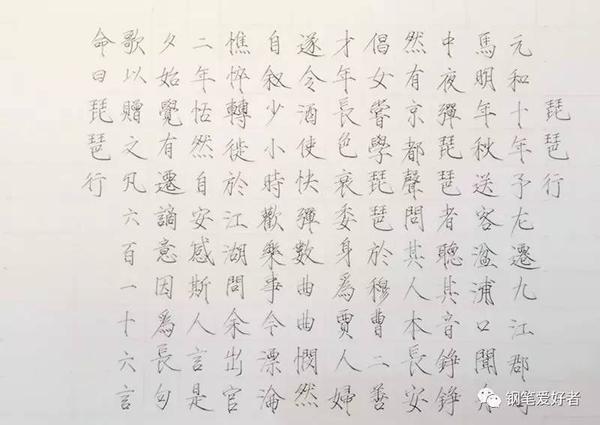 琵琶行
元和十年予左遷九江郡
馬明年秋送客湓浦口聞
中夜彈琵琶者聽其音錚錚
然有京都聲問其人本長安
倡女嘗學琵琶於穆曹二善
才年長色衰委身爲賈人婦
遂令酒使快彈數曲曲憫然
自叙少小時歡樂事今漂淪
憔悴轉徙於江湖間余出官
二年恬然自安感斯人言是
夕始覺有遷謫意因爲長句
歌以贈之凡六百一十六言
命曰琵琶行
钢笔爱好者